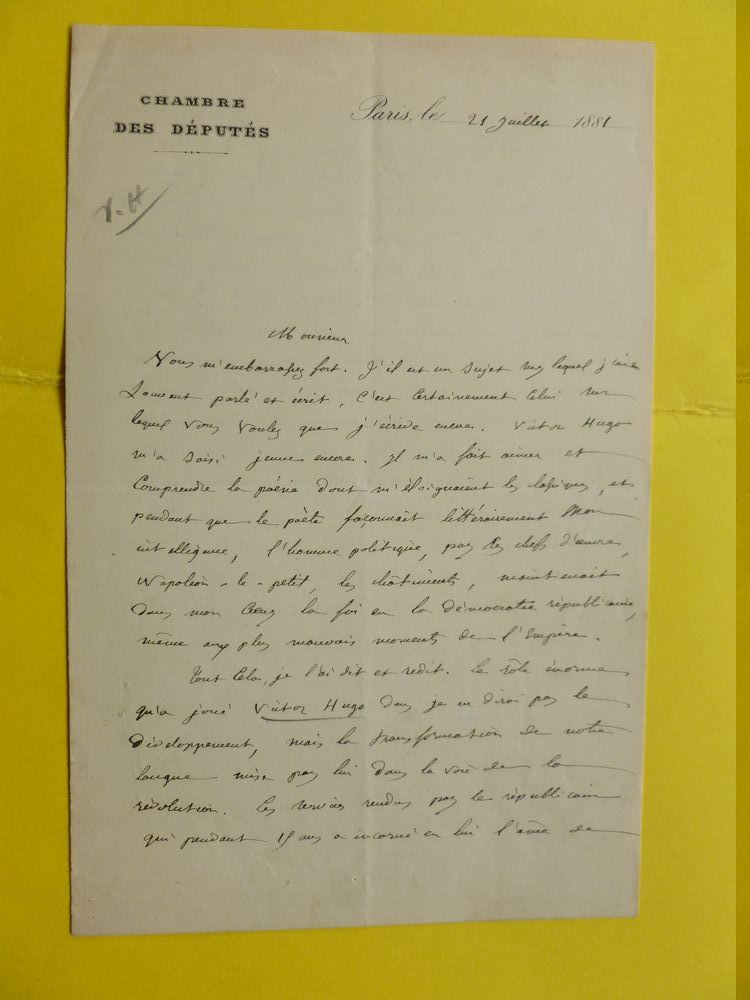 CHAMBRE
DES DÉPUTÉS
Paris, le 21 Juillet 1881
V.H
Monsieur
Vous m'embarrassez fort. S'il est un sujet sur lequel j'aie
souvent parlé et écrit, c'est certainement celui sur
lequel vous voulez que j'écrive encore. Victor Hugo
m'a saisi jeune encore. Il m'a fait aimer et
comprendre la poésie dont m'éloignaient les classiques, et
pendant que le poète façonnait littérairement mon
intelligence, l'homme politique, par les chefs d'œuvre,
Napoléon-le-petit, les châtiments, maintenait
dans mon cœur la foi en la démocratie républicaine,
même aux plus mauvais moments de l'Empire.
Tout cela, je l'ai dit et redit. Le rôle énorme
qu'a joué Victor Hugo dans je ne dirai pas le
développement, mais la transformation de notre
langue mise par lui dans la voie de la
révolution. Les services rendus par le républicain
qui pendant 19 ans a incarné en lui l'âme de